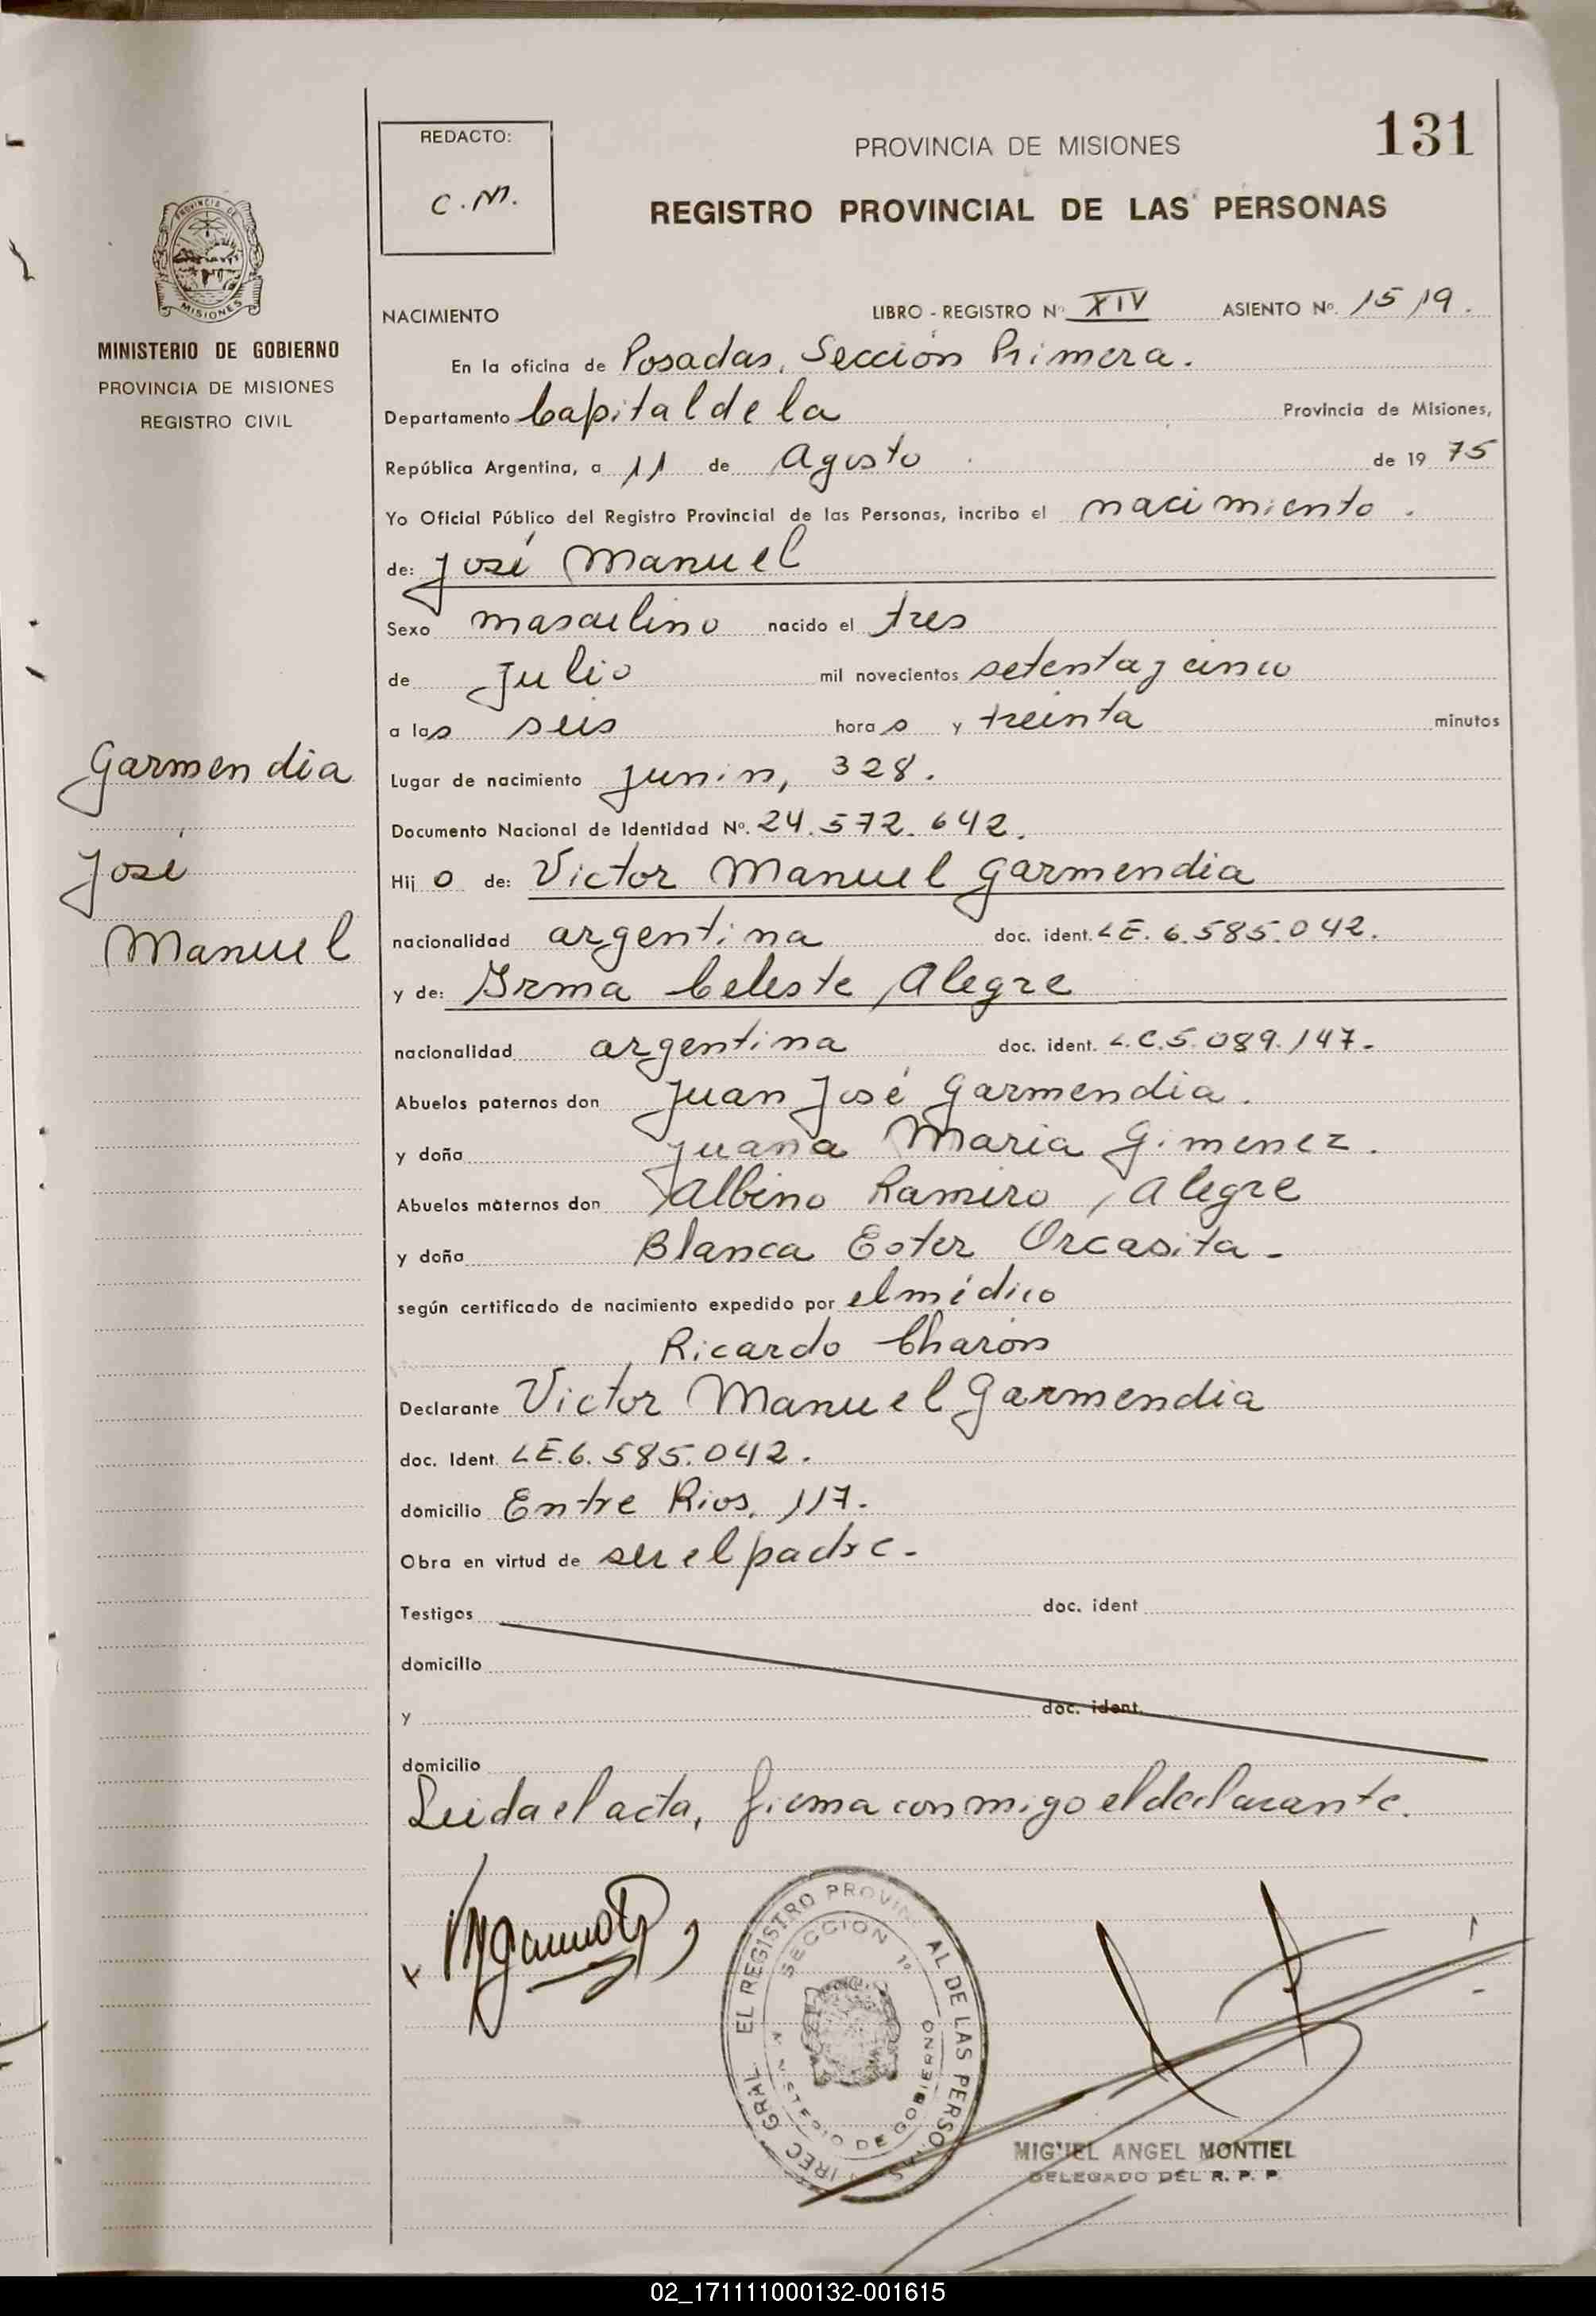 131
REDACTO:
C.M.
PROVINCIA DE MISIONES
REGISTRO PROVINCIAL DE LAS PERSONAS
MISIONES
MINISTERIO DE GOBIERNO
PROVINCIA DE MISIONES
REGISTRO CIVIL
NACIMIENTO LIBRO - REGISTRO Nº XIV ASIENTO Nº. 1519.
En la oficina de Posadas, Sección Primera.
Departamento Capital de la Provincia de Misiones,
República Argentina, a 11 de Agosto de 19 75
Yo Oficial Público del Registro Provincial de las Personas, incribo el nacimiento.
de: José Manuel
Sexo masculino nacido el tres
de Julio mil novecientos setenta y cinco
a las seis horas y treinta minutos
Garmendia
José
Manuel
Lugar de nacimiento Junin, 328.
Documento Nacional de Identidad Nº. 24.572.642.
Hijo de: Victor Manuel Garmendia
nacionalidad argentina doc. ident. LE. 6.585.042.
y de: Irma Celeste Alegre
nacionalidad argentina doc. ident. L.C.5.089.147.-
Abuelos paternos don Juan José Garmendia.
y doña Juana Maria Gimenez.
Abuelos maternos don Albino Ramiro Alegre
y doña Blanca Ester Orcasita.-
según certificado de nacimiento expedido por el médico
Ricardo Charón
Declarante Victor Manuel Garmendia
doc. Ident. LE.6.585.042.
domicilio Entre Rios, 117.-
Obra en virtud de ser el padre.-
Testigos doc. ident
domicilio
y doc. ident.
domicilio
Leida el acta, firma conmigo el declarante.
EL REGISTRO PROVIN AL DE LAS PERSO AS
SECCION 1º
STERIO DE GOBIERNO
IREC GRAL.
MIGUEL ANGEL MONTIEL
DELEGADO DEL R. P. P.
02_171111000132-001615